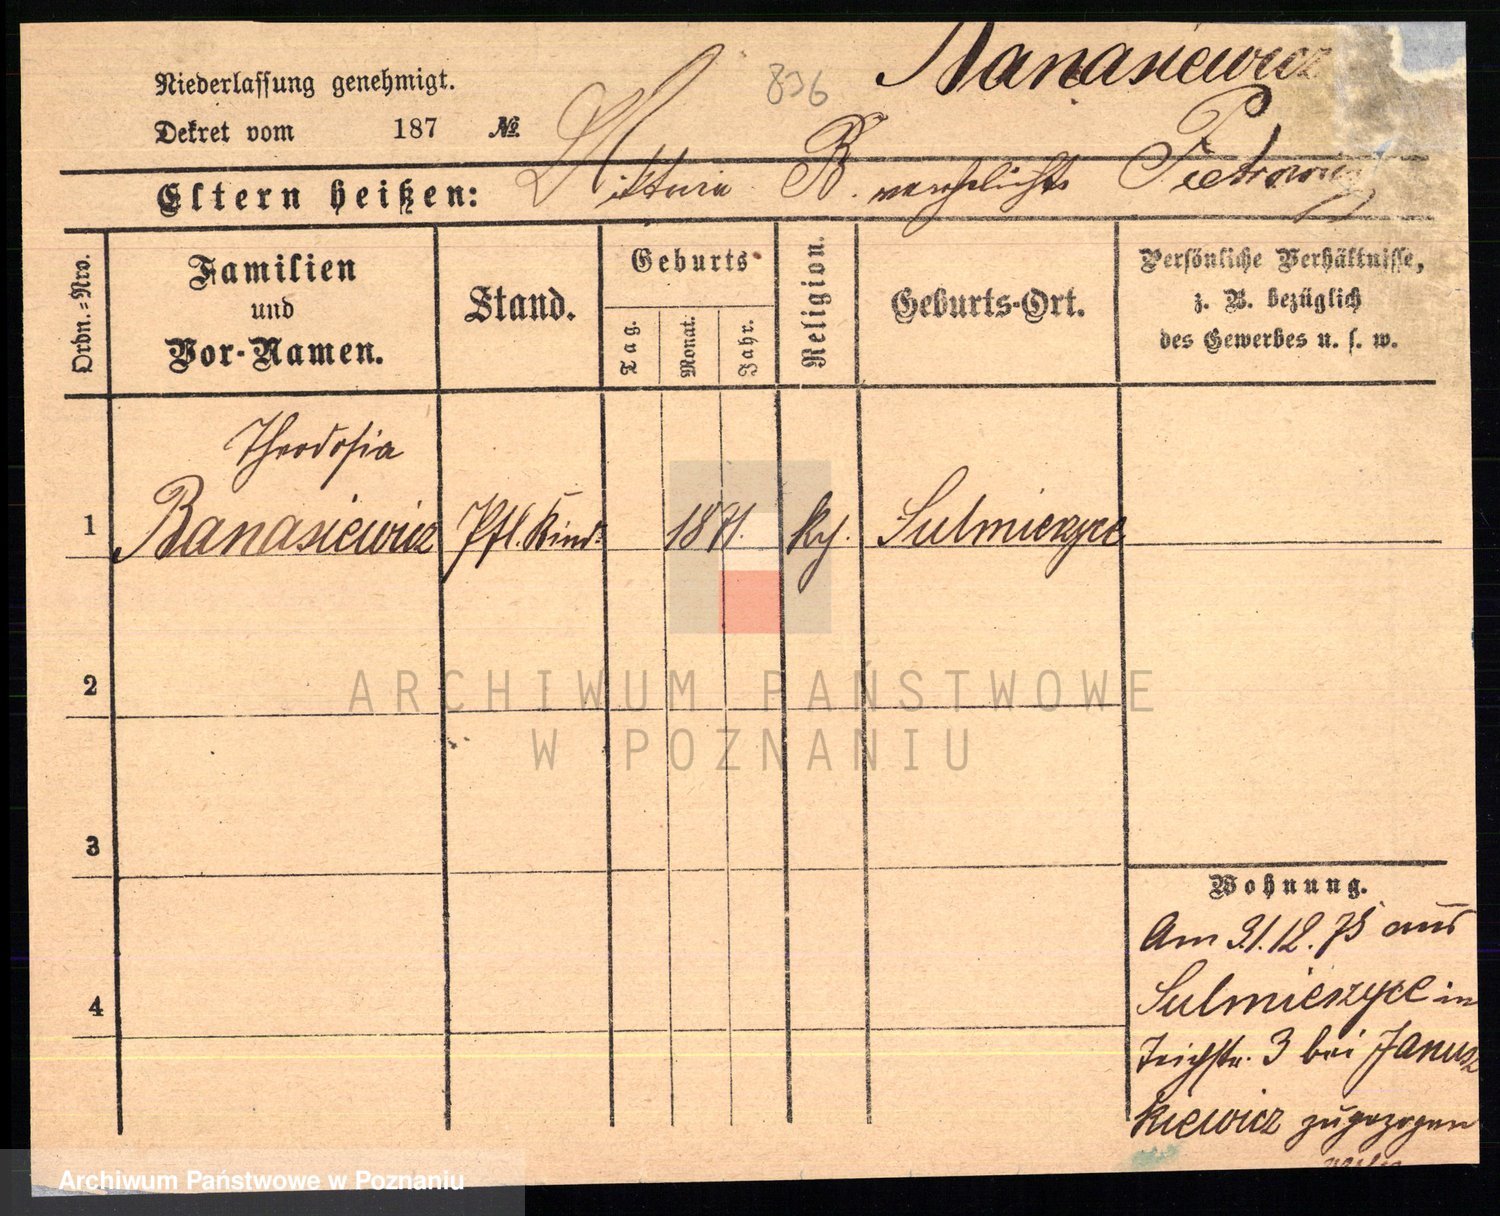 Banasiewicz
836
Niederlassung genehmigt.
Dekret vom 187 №
Eltern heißen: Viktoria B. verehelichte
Ordn.=Nro.
Familien
und
Vor-Namen.
Stand.
Geburts
Tag.
Monat.
Jahr.
Religion.
Geburts-Ort.
Persönliche Verhältnisse,
z. B. bezüglich
des Gewerbes u. s. w.
Theodosia
1 Banasiewicz Pfl. Kind 1871. kth. Sulmierzyce
2
3
4
Wohnung.
Am 31.12.75 aus
Sulmierzyce in
Teichstr. 3 bei Janusz
kiewicz zugezogen
ARCHIWUM PAŃSTWOWE
W POZNANIU
Archiwum Państwowe w Poznaniu